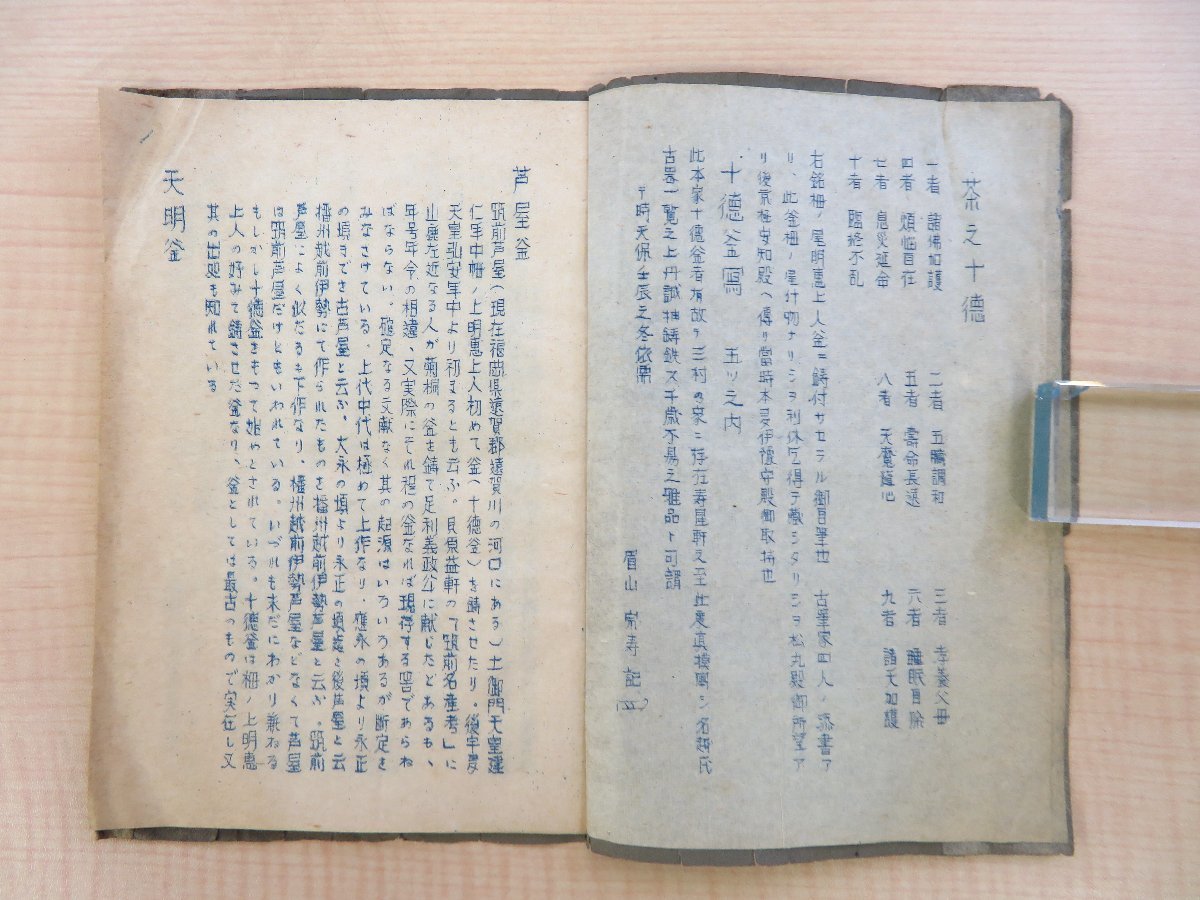 茶之十徳
一者 諸佛加護 二者 五臓調和 三者 孝養父母
四者 煩悩自在 五者 壽命長遠 六者 睡眠自除
七者 息災延命 八者 天魔随心 九者 諸天加護
十者 臨終不乱
右銘栂ノ尾明惠上人釜ニ鋳付サセラル御自筆也 古筆家四人ノ添書ア
リ、此釜栂ノ尾什物ナリシヲ利休乞得テ蔵シタリシヲ松丸殿御所望ア
リ後京極安知殿ヘ傳リ當時本多伊禮守殿御取持也
十徳釜寫 五ツ之内
此本家十徳釜者有故テ三村の家ニ存在寿屋軒又至此度真模寫シ名越氏
古器一覧之上丹誠抽鋳鉄ス千歳不易之雅品ト可謂
干時天保壬辰之冬依需
眉山 宗寿記
芦屋釜
筑前芦屋(現在福岡県遠賀郡遠賀川の河口にある)土御門天皇建
仁年中栂ノ上明惠上人初めて釜(十徳釜)を鋳させたり。後宇多
天皇弘安年中より初まるとも云ふ。貝原益軒の「筑前名産考」に
山鹿左近なる人が菊桐の釜を鋳て足利義政公に献じたとあるも、
年号年令の相違、又実際にそれ程の釜なれば現存する筈であらね
ばならない。確定なる文献なく其の起源はいろいろあるが断定を
みなさけている。上代中代は極めて上作なり、應永の頃より永正
の頃までを古芦屋と云ふ。大永の頃より永正の頃迄を後芦屋と云
播州越前伊勢にて作られたものを播州越前伊勢芦屋と云ふ。筑前
芦屋によく似たるも下作なり、播州越前伊勢芦屋などなくて芦屋
は筑前芦屋だけともいわれている。いづれも未だにわかり兼ねる
もしかし十徳釜をもつて始めとされている。十徳釜は栂ノ上明惠
上人の好みて鋳させた釜なり、釜としては最古のもので実在し又
其の出処も知れている
天明釜